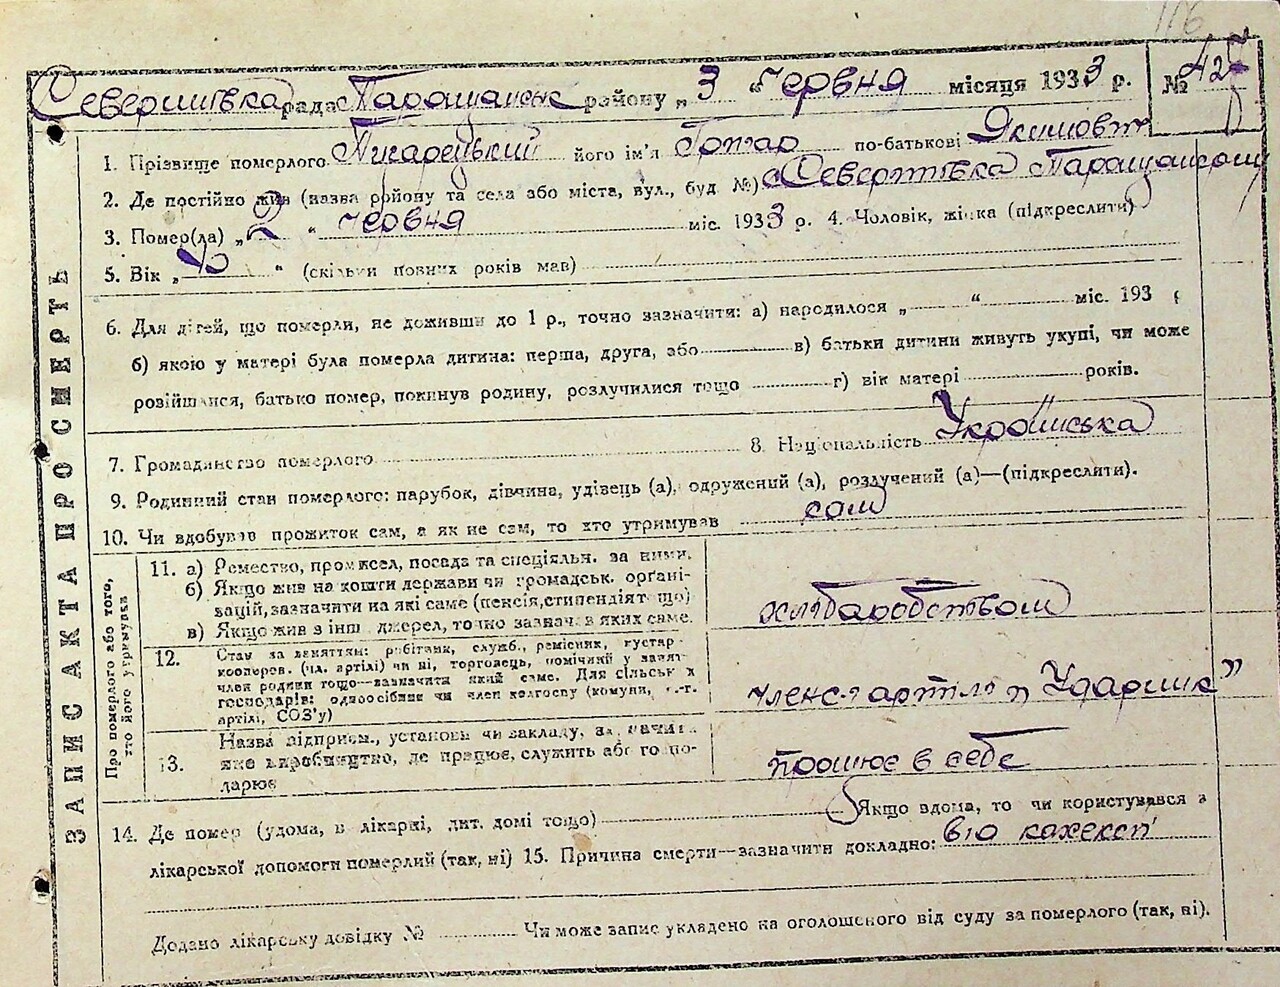 116
Северинівка рада Таращанськ району „3" Червня місяця 1933 р. № 42
1. Прізвище померлого його ім'я по-батькові Якимович
2. Де постійно жив (назва району та села або міста, вул., буд №) с Северинівка
3. Помер(ла) „2" червня міс. 1933 р. 4. Чоловік, жінка (підкреслити)
5. Вік „ " (скільки повних років мав)
6. Для дітей, що померли, не доживши до 1 р., точно зазначити: а) народилося „ " міс. 193 р
б) якою у матері була померла дитина: перша, друга, або в) батьки дитини живуть укупі, чи може
розійшлися, батько помер, покинув родину, розлучилися тощо г) вік матері років.
7. Громадянство померлого 8. Національність Українська
9. Родинний стан померлого: парубок, дівчина, удівець (а), одружений (а), розлучений (а)—(підкреслити).
10. Чи здобував прожиток сам, а як не сам, то хто утримував сам
ЗАПИС АКТА ПРО СМЕРТЬ
Про померлого або того,
хто його утримував
11. а) Ремество, промисел, посада та спеціяльн. за ними.
б) Якщо жив на кошти держави чи громадськ. органі-
зацій, зазначити на які саме (пенсія, стипендія тощо)
в) Якщо жив з інш. джерел, точно зазнач. з яких саме.
хліборобством
12. Стан за заняттям: робітник, служб., ремісник, кустар
кооперов. (чл. артілі) чи ні, торговець, помічний у занят.
член родини тощо—зазначити який саме. Для сільськ х
господарів: одноосібник чи член колгоспу (комуни, с.-г.
артілі, СОЗ'у)
член с-г артілі „Ударник"
13. Назва підприєм., установи чи закладу, зазначити
яке виробництво, де працює, служить або госпо-
дарює
працює в себе
14. Де помер (удома, в лікарні, дит. домі тощо) Якщо вдома, то чи користувався з
лікарської допомоги померлий (так, ні) 15. Причина смерти—зазначити докладно: від кахексії
Додано лікарську довідку № Чи може запис укладено на оголошеного від суду за померлого (так, ні).